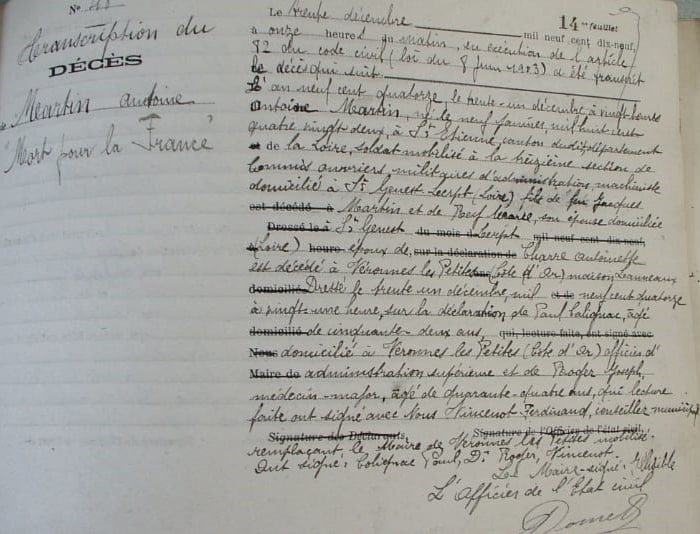 N°
Transcription du
DÉCÈS
Martin Antoine
"Mort pour la France"
14me feuillet
Le trente décembre mil neuf cent dix-neuf,
à onze heures du matin, en exécution de l'article
82 du code civil (loi du 8 Juin 1903) a été transcrit
le décès qui suit
L'an neuf cent quatorze, le trente-un décembre à vingt heures
Antoine Martin, né le neuf janvier, mil huit cent
quatre vingt deux, à St Etienne, canton dudit, département
de la Loire, soldat mobilisé à la treizième section de
Commis ouvriers, militaires d'administration, machiniste
domicilié à St Genest Lerpt (Loire) fils de feu Jacques
est décédé à Martin et de son épouse domiciliée
Dressé le à St Genest du mois de Lerpt mil neuf cent dix-neuf,
à (Loire) heure époux de, sur la déclaration de Charre Antoinette
est décédé à Véronnes les Petites (Côte d'Or) maison Jeanneaux
domicilié Dressé le trente un décembre, mil et de neuf cent quatorze
à vingt-une heure, sur la déclaration de Paul Calignac, âgé
domicilié de cinquante-deux ans, qui, lecture faite, ont signé avec
Nous domicilié à Véronnes les Petites (Côte d'Or) officier d'
Maire de administration supérieure et de Roger Joseph,
médecin-major, âgé de quarante-quatre ans, qui lecture
faite ont signé avec Nous Vincenot Ferdinand, conseiller municipal
Signature des Déclarants, Signature de l'Officier de l'état civil,
remplaçant le Maire de Véronnes les Petites mobilisé.
Ont signé: Calignac Paul, Dr Roger, Vincenot.
Le Maire-signé: Illisible
L'Officier de l'Etat civil